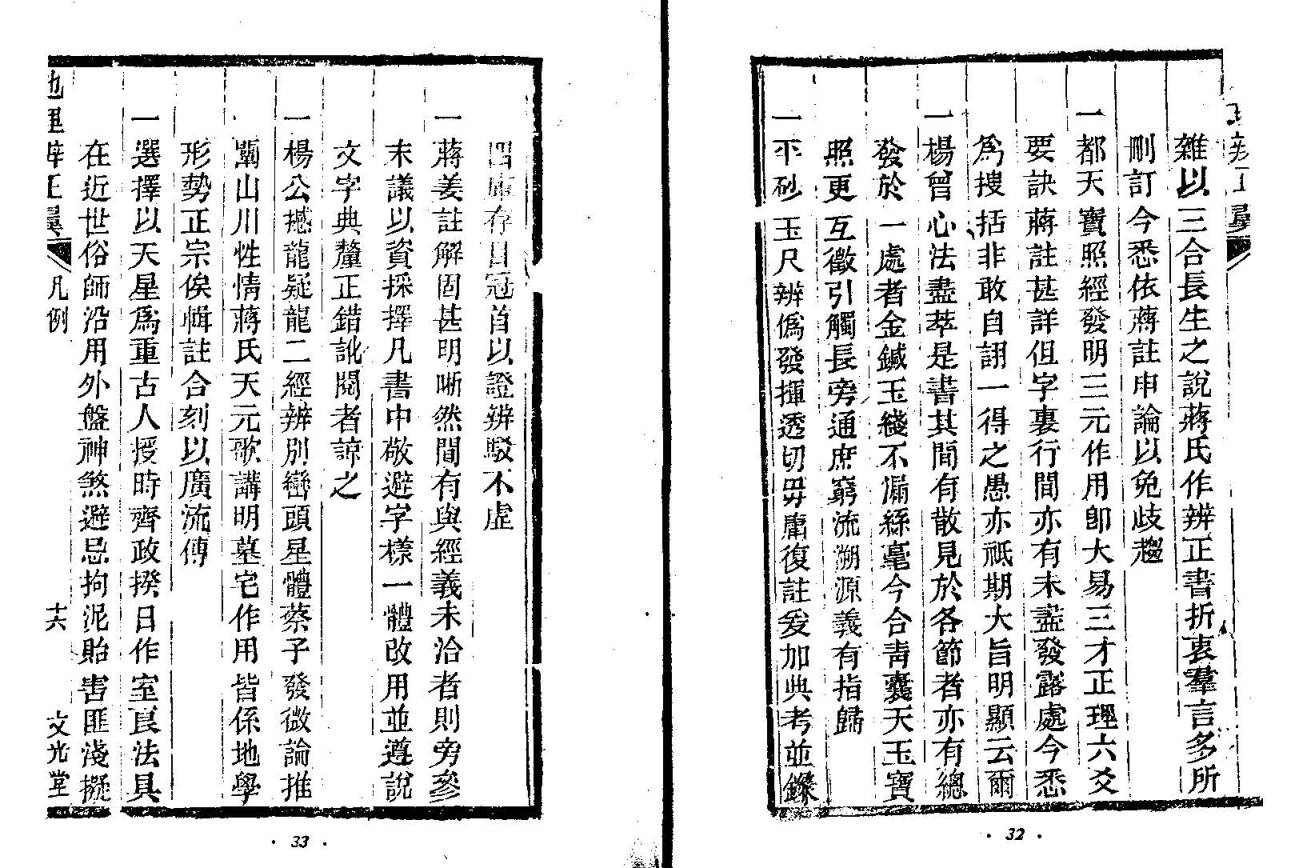 雜以三合長生之說蔣氏作辨正書折衷羣言多所
刪訂今悉依蔣註申論以免歧趨
一都天寶照經發明三元作用卽大易三才正理六爻
要訣蔣註甚詳但字裏行間亦有未盡發露處今悉
爲搜括非敢自詡一得之愚亦祗期大旨明顯云爾
一楊曾心法盡萃是書其間有散見於各節者亦有總
發於一處者金鍼玉綫不漏絲毫今合靑囊天玉寶
照更互徵引觸長旁通庶窮流溯源義有指歸
一平砂玉尺辨僞發揮透切毋庸復註爰加典考並鑅
· 32 ·
四庫存目冠首以證辨駁不虛
一蔣姜註解固甚明晰然間有與經義未洽者則旁參
末議以資採擇凡書中敬避字樣一體改用並遵說
文字典釐正錯訛閱者諒之
一楊公撼龍疑龍二經辨別巒頭星體蔡子發微論推
闡山川性情蔣氏天元歌講明墓宅作用皆係地學
形勢正宗俟輯註合刻以廣流傳
一選擇以天星爲重古人授時齊政揆日作室良法具
在近世俗師沿用外盤神煞避忌拘泥貽害匪淺擬
地理辨正翼 凡例 十六 文光堂
· 33 ·